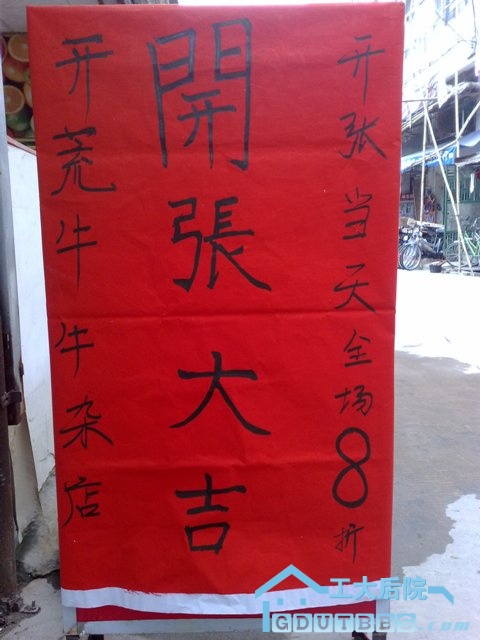 开张当天全场8折
開張大吉
开荒牛牛杂店
工大后院
GDUTBBS.com